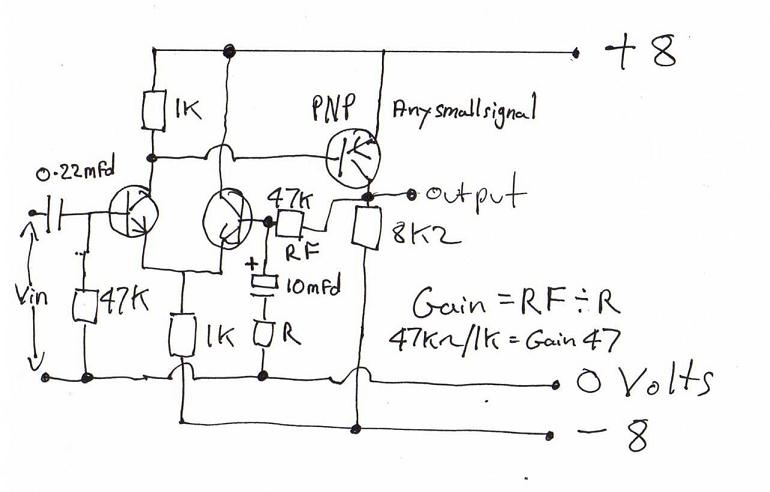 + 8
1K
PNP
Any small signal
0.22mfd
47K
output
RF
8K2
+
10mfd
Vin
47K
1K
R
Gain = RF ÷ R
47K~/1K = Gain 47
0 Volts
- 8